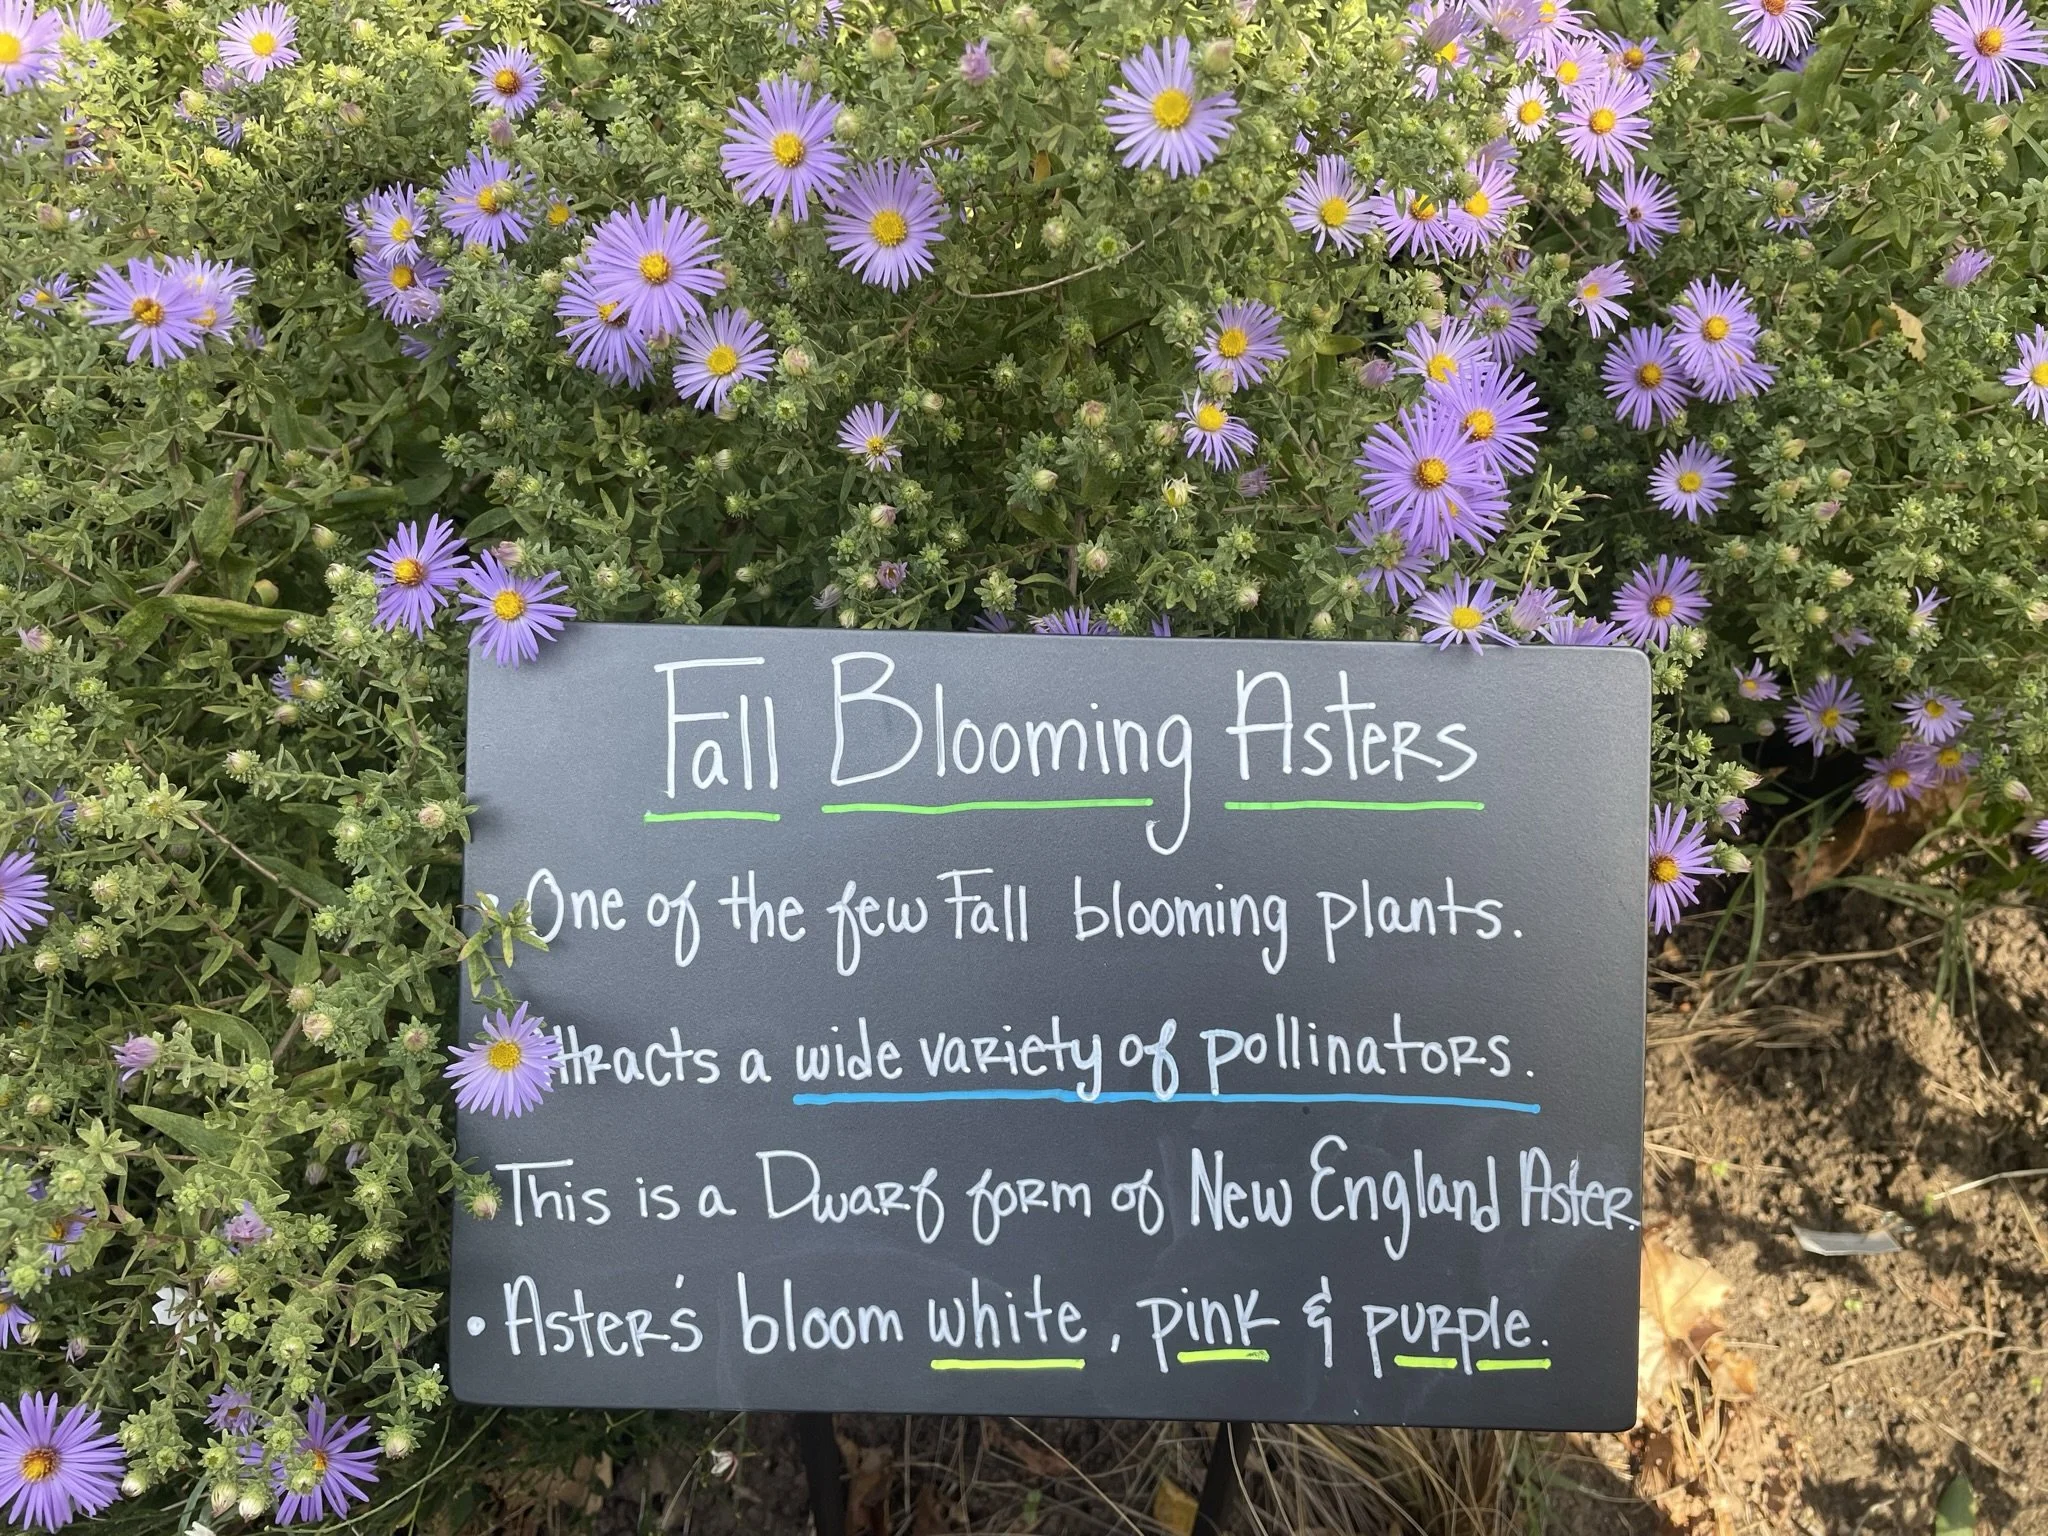 Fall Blooming Asters
• One of the few Fall blooming plants.
ttracts a wide variety of pollinators.
This is a Dwarf form of New England Aster.
• Aster's bloom white, pink & purple.